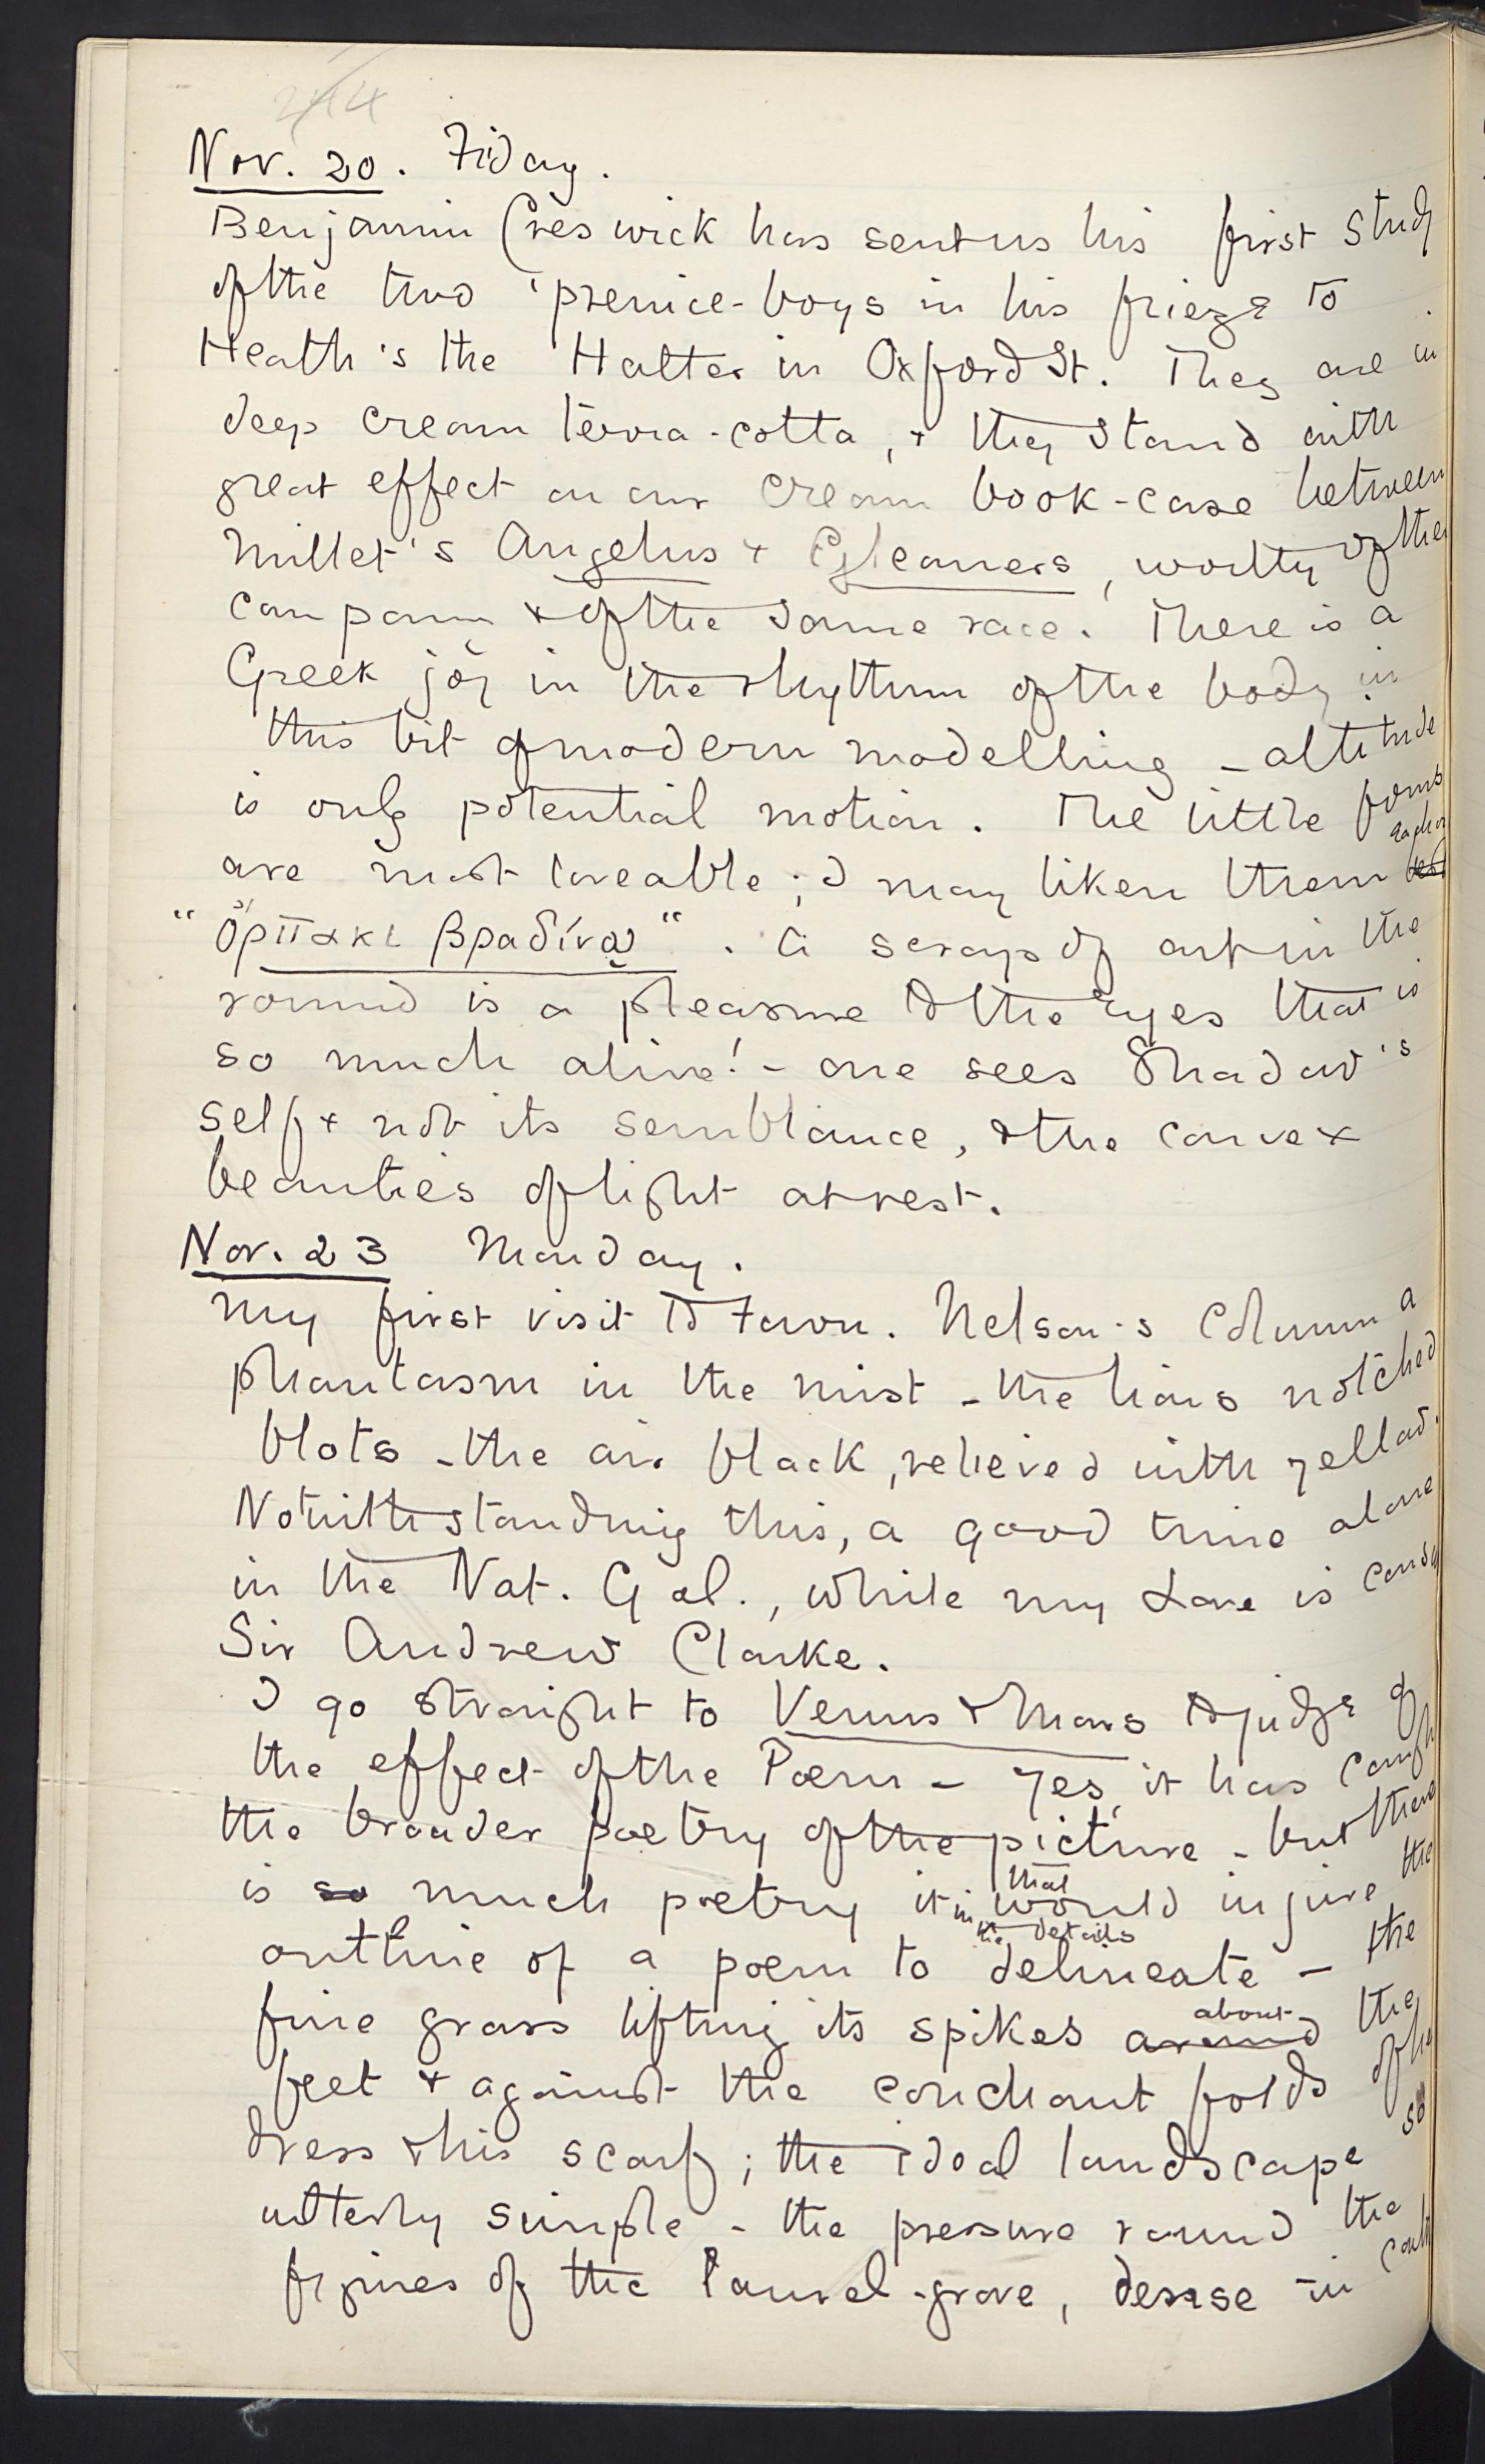 244
Nov. 20. Friday.
Benjamin Creswick has sent us his first study
of the two 'prentice-boys in his frieze to
Heath's the Hatter in Oxford St. They are in
deep cream terra-cotta, + they stand with
great effect on our cream book-case between
Millet's Angelus + Gleaners, worthy of the
company + of the same race. There is a
Greek joy in the rhythm of the body in
this bit of modern modelling – attitude
is only potential motion. The little forms
are most loveable; I may liken them each as
"ὄρπακι βραδίνῳ". A scrap of art in the
round is a pleasure to the eyes that is
so much alive! – one sees Shadow's
self + not its semblance, + the convex
beauties of light at rest.
Nov. 23 Monday.
My first visit to town. Nelson's Column a
phantasm in the mist – the lions notched
blots – the air black, relieved with yellow.
Notwithstanding this, a good time alone
in the Nat. Gal., while my Love is
Sir Andrew Clarke.
I go straight to Venus + Mars to judge of
the effect of the Poem – yes, it has caught
the broader poetry of the picture – but there
is so much poetry in the details that it would injure the
outline of a poem to delineate – the
fine grass lifting its spikes around about the
feet + against the couchant folds of her
dress + his scarf; the ideal landscape so
utterly simple – the pressure round the
figures of the laurel-grove, dense in